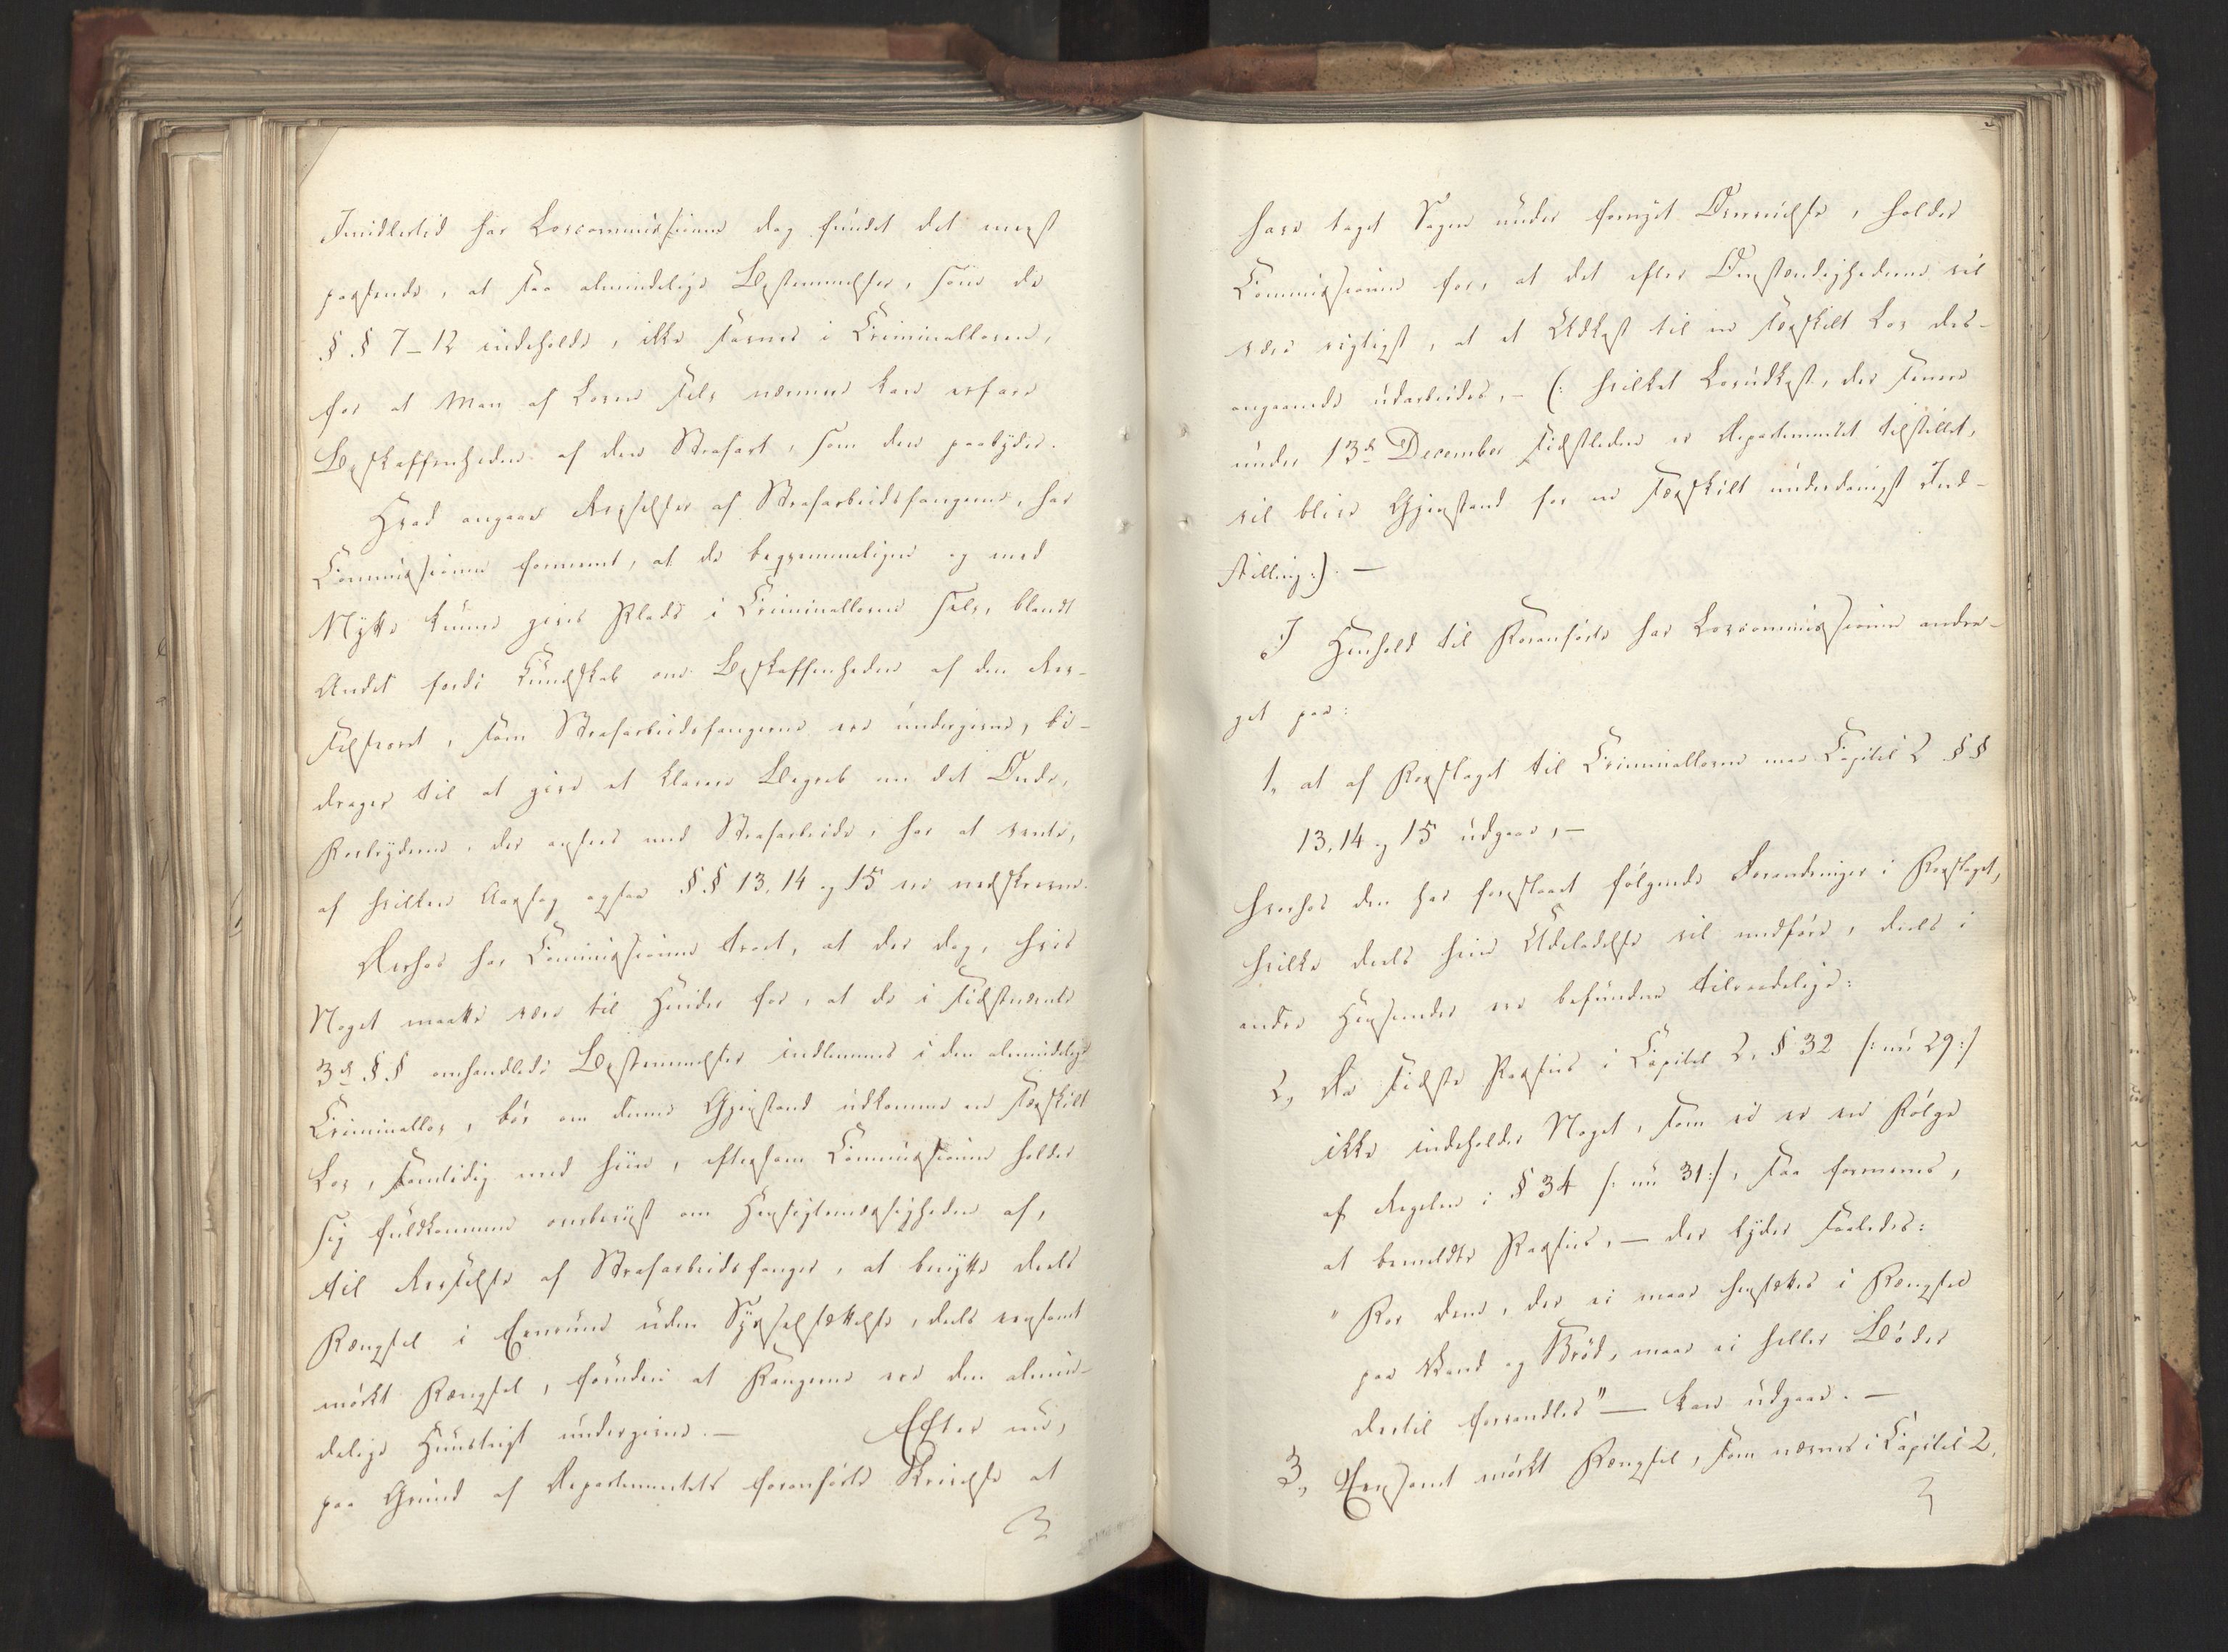 Imidlertid har Lovcommissionen dog fundet det meest
passende, at saa almindelige Bestemmelser, som de
§§ 7-12 indeholde, ikke savnes i Criminalloven,
for at Man af Loven selv nærmere kan erfare
Beskaffenheden af den Strafart, som den paabyder.
Hvad angaaer Revselser af Strafarbeidsfangerne, har
Commissionen formeent, at de beqvemmeligen og med
Nytte kunne gives Plads i Criminalloven selv, blandt
Andet fordi Kundskab om Beskaffenheden af den Rev-
selsret, som Strafarbeidsfangerne ere undergivne, bi-
drager til at give et klarere Begreb om det Onde,
Forbryderen, der ansees med Strafarbeide, har at vente,
af hvilken Aarsag ogsaa §§ 13, 14 og 15 ere nedskrevne.
Derhos har Commissionen troet, at der dog, hvis
Noget maatte være til Hinder for, at de i sidstnævnte
3de §§ omhandlede Bestemmelser indlemmes i den almindelige
Criminallov, bør om denne Gjenstand udkomme en særskilt
Lov, samtidig med hiin, eftersom Commissionen holder
sig fuldkommen overbeviist om Hensigtsmæssigheden af,
til Revselse af Strafarbeidsfanger, at benytte deels
Fængsel i Eenrum uden Sysselsættelse, deels eensomt
mørkt Fængsel, foruden at Fangerne ere den almin-
delige Huustugt undergivne. — Efter nu,
paa Grund af Departementets foranførte Skrivelse at
have taget Sagen under fornyet Overveielse, holder
Commissionen for, at det efter Omstændighederne vil
være rigtigst, at et Udkast til en særskilt Lov des-
angaaende udarbeides, — (: hvilket Lovudkast, der senere
under 13de December sidstleden er Departementet tilstillet,
vil blive Gjenstand for en særskilt underdanigst Ind-
stilling:). —
I Henhold til Foranførte har Lovcommissionen andra-
get paa:
1, at af Forslaget til Criminalloven maa Capitel 2 §§
13, 14 og 15 udgaae, —
hvorhos den har foreslaaet følgende Forandringer i Forslaget,
hvilke deels hiin Udeladelse vil medføre, deels i
andre Henseender ere befundne tilraadelige:
2, Da sidste Passus i Capitel 2, § 32 /: nu 29:/
ikke indeholder Noget, som ei er en Følge
af Regelen i § 34 /: nu 31:/, saa formenes,
at bemeldte Passus, — der lyder saaledes:
"For dem, der ei maae hensættes i Fængsel
paa Vand og Brød, maae ei heller Bøder
dertil forvandles" — kan udgaae. —
3, Eensomt mørkt Fængsel, som nævnes i Capitel 2,